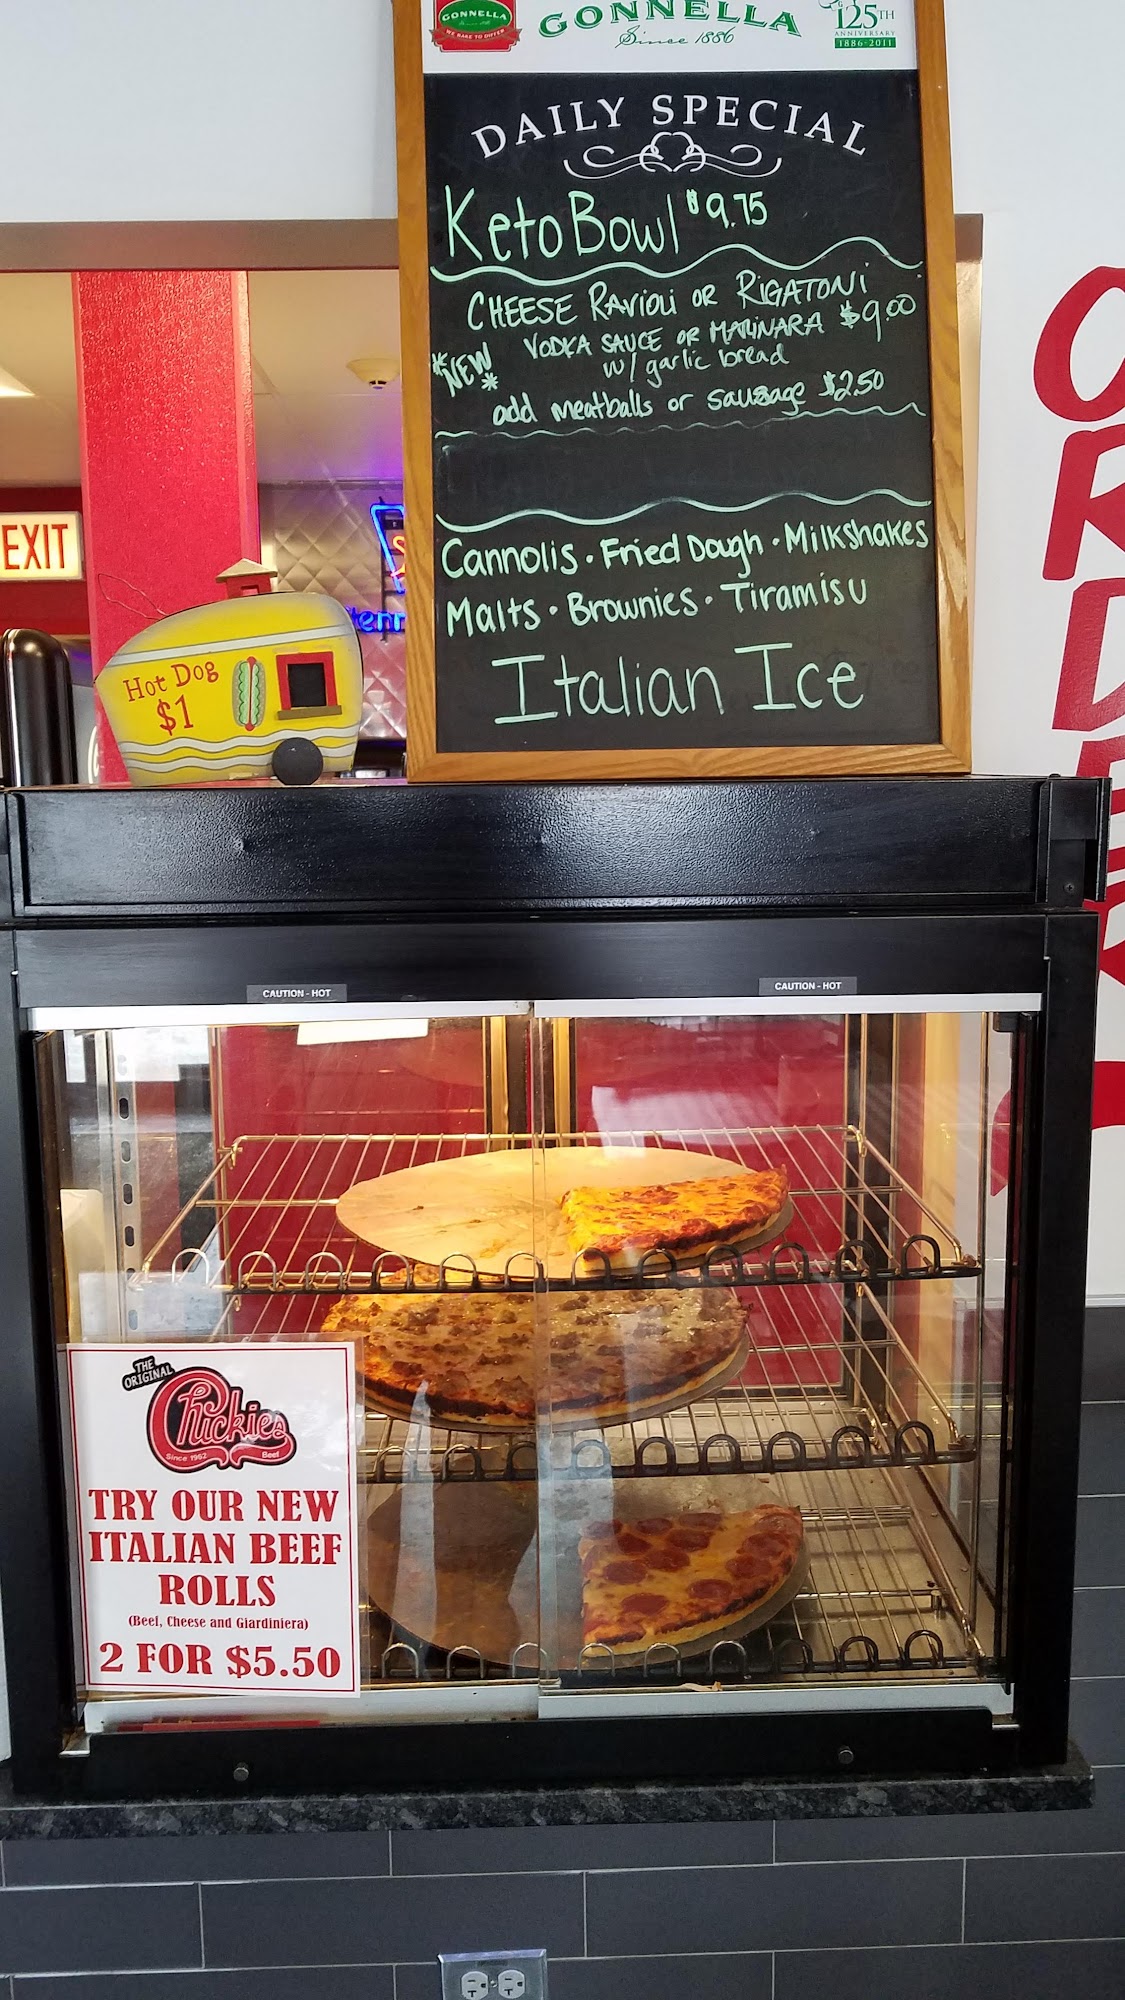 GONNELLA
WE BAKE TO DIFFER
GONNELLA
Since 1886
125TH
ANNIVERSARY
1886-2011
DAILY SPECIAL
Keto Bowl $9.75
CHEESE RAVIOLI OR RIGATONI
VODKA SAUCE OR MARINARA $9.00
*NEW*
w/ garlic bread
add meatballs or sausage $2.50
Cannolis · Fried Dough · Milkshakes
Malts · Brownies · Tiramisu
Italian Ice
EXIT
Hot Dog
$1
ORDER
CAUTION - HOT
CAUTION - HOT
THE
ORIGINAL
Chickies
Since 1962
Beef
TRY OUR NEW
ITALIAN BEEF
ROLLS
(Beef, Cheese and Giardiniera)
2 FOR $5.50